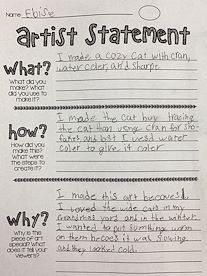 Name Eloise
artist Statement
What?
What did you make? What did you use to make it?
I made a cozy cat with cran,
water coler, and sharpe
how?
How did you make this? What were the steps to create it?
I made the cat buy tracing
the cat than using cran for sha-
and last I uesd water
coler to give it coler
Why?
Why is this piece of art special? What does it tell your viewers?
I made this art becoues I
loved the wide cats in my
Grandmas yard and in the winter
I wanted to put sumthing worm
on them becoes it was Snowing
and they looked cold.